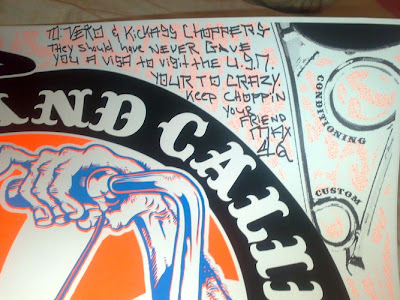 TO: VERO & KickASS CHOPPERS
They Should have NEVER GAVE
YOU A VISA TO Visit the U.S.A.
YOUR TO CRAZY.
KEEP CHOPPIN
YOUR
FRIEND
MAX
AND CALI
CONDITIONING
CUSTOM